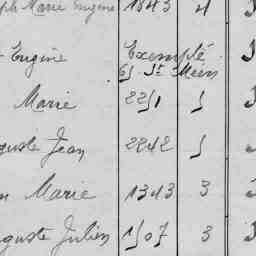 ph Marie Eugène 1343 4
Eugène Exempté
St Méen
Marie 2251 5
guste Jean 2242 5
Marie 1343 3
uguste Julien 1507 3